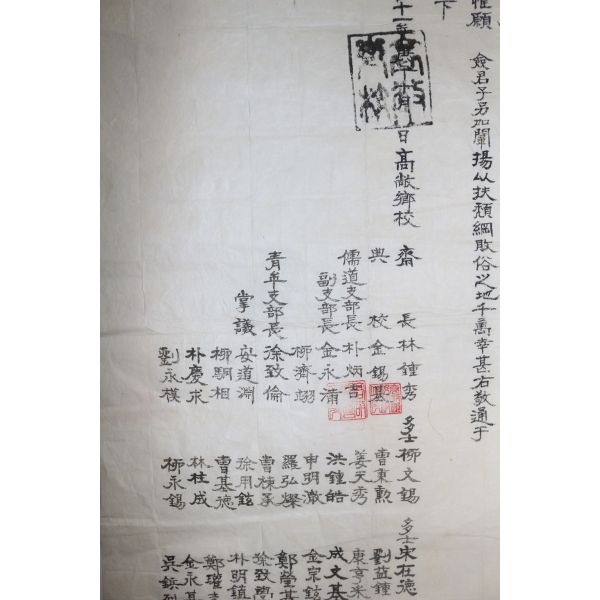 惟願
僉君子另加闡揚以扶頹綱敗俗之地千萬幸甚右敬通于
下
十一年 十月 日高敞鄕校
齋長林鍾秀 多士柳文錫 多士宋在德
典校金錫基 曹秉勲 劉益鍾
儒道支部長朴炳吉 姜天秀
副支部長金永蒲 洪鍾皓 成文基
柳濟翊 申明澈 金宗鉉
青年支部長徐致倫 羅弘燦 鄭瑩基
掌議安道淵 曹棟承 徐致
柳駉相 徐用鉉 朴明鎮
朴慶求 曹基德 鄭瓘
劉永模 林杜成 金永基
柳永錫 吳鉄